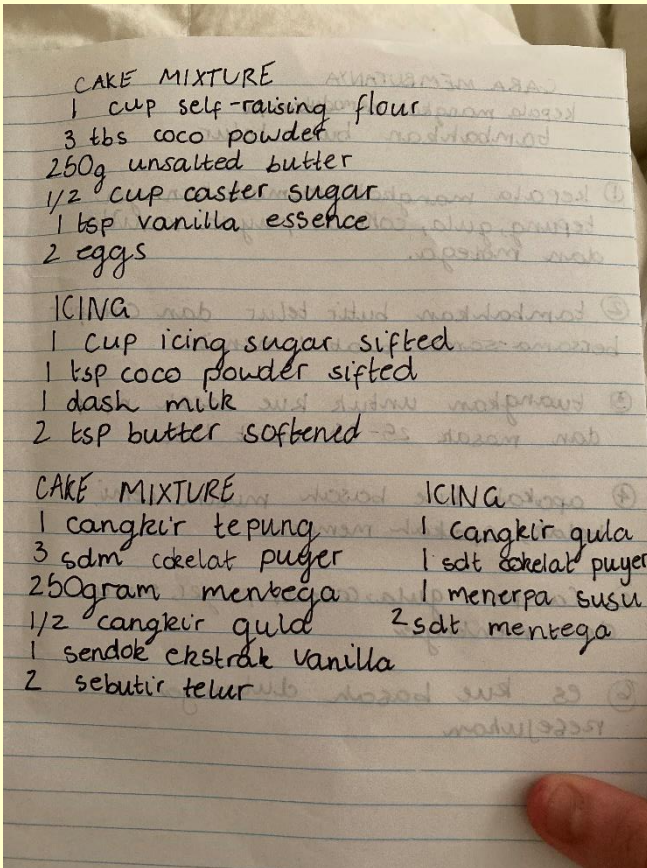 CAKE MIXTURE
1 cup self-raising flour
3 tbs coco powder
250g unsalted butter
1/2 cup caster sugar
1 tsp vanilla essence
2 eggs
ICING
1 cup icing sugar sifted
1 tsp coco powder sifted
1 dash milk
2 tsp butter softened
CAKE MIXTURE
1 cangkir tepung
3 sdm cokelat puyer
250gram mentega
1/2 cangkir gula
1 sendok ekstrak vanilla
2 sebutir telur
ICING
1 cangkir gula
1 sdt cokelat puyer
1 menerpa susu
2 sdt mentega